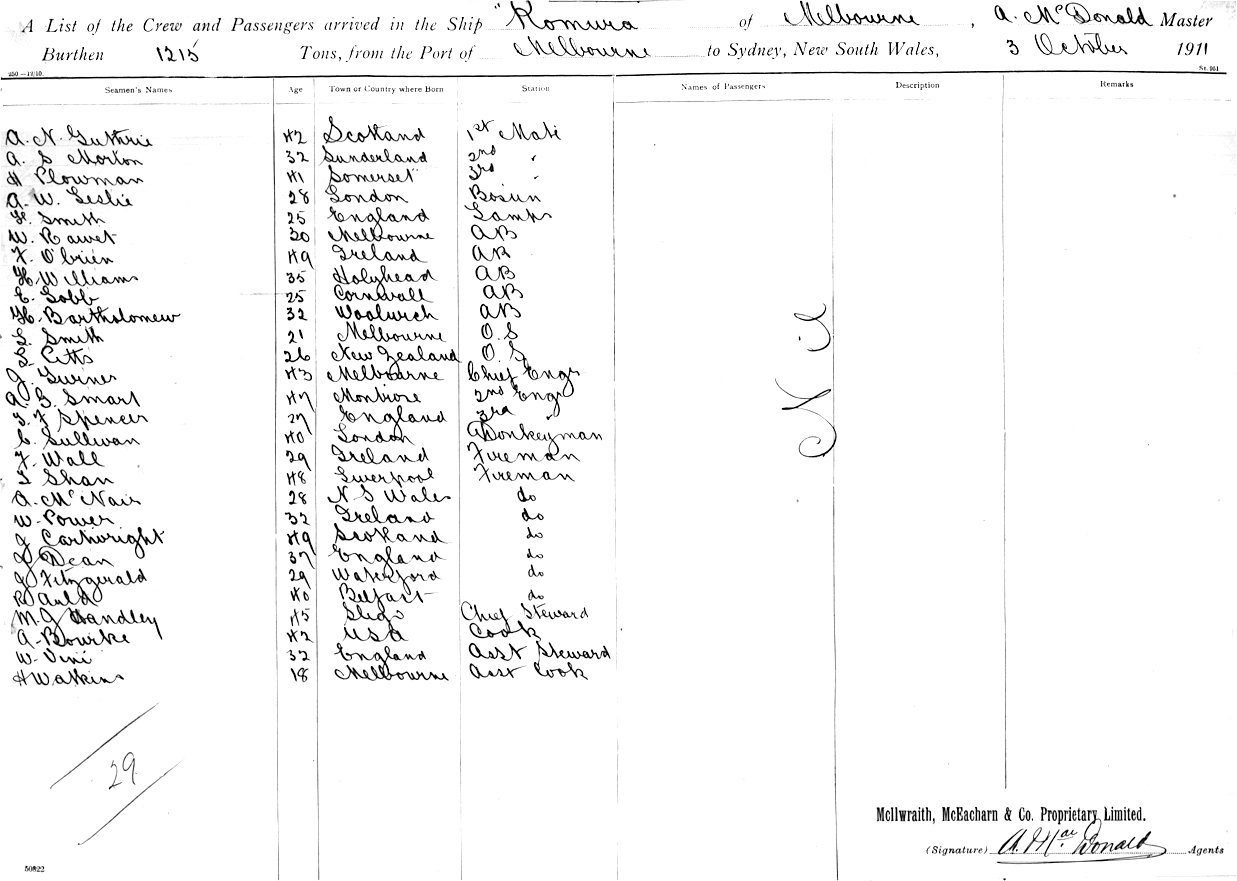 A List of the Crew and Passengers arrived in the Ship "Komura of Melbourne, A. McDonald Master
Burthen 1215 Tons, from the Port of Melbourne to Sydney, New South Wales, 3 October 1911
250 —12/10. St. 961
Seamen's Names Age Town or Country where Born Station Names of Passengers Description Remarks
A. N. Guthrie 42 Scotland 1st Mate
A. S Morton 32 Sunderland 2nd "
H Plowman 41 Somerset 3rd "
A. W. Leslie 28 London Bosun
H. Smith 25 England Lamps
W. Rawet 30 Melbourne AB
F. O'brien 49 Ireland AB
H. Williams 35 Holyhead AB
E. Gobb 25 Cornwall AB
H. Bartholomew 32 Woolwich AB
L. Smith 21 Melbourne O.S
L. 26 New Zealand O.S
J. Gurner 43 Melbourne Chief Engr
A. G. Smart 47 Montrose 2nd Engr
T. F Spencer 27 England 3rd "
C. Sullivan 40 London Donkeyman
F. Wall 29 Ireland Fireman
T Shan 48 Liverpool Fireman
A. McNair 28 N S Wales do
W. Power 32 Ireland do
J Cartwright 49 Scotland do
J Dean 37 England do
J Fitzgerald 29 Waterford do
R Auld 40 Belfast do
M. J Handley 45 Sligo Chief Steward
A. Bourke 42 USA Cook
W. Vini 32 England Asst Steward
H Watkins 18 Melbourne Asst Cook
29
McIlwraith, McEacharn & Co. Proprietary, Limited.
(Signature) A. MacDonald Agents
50822